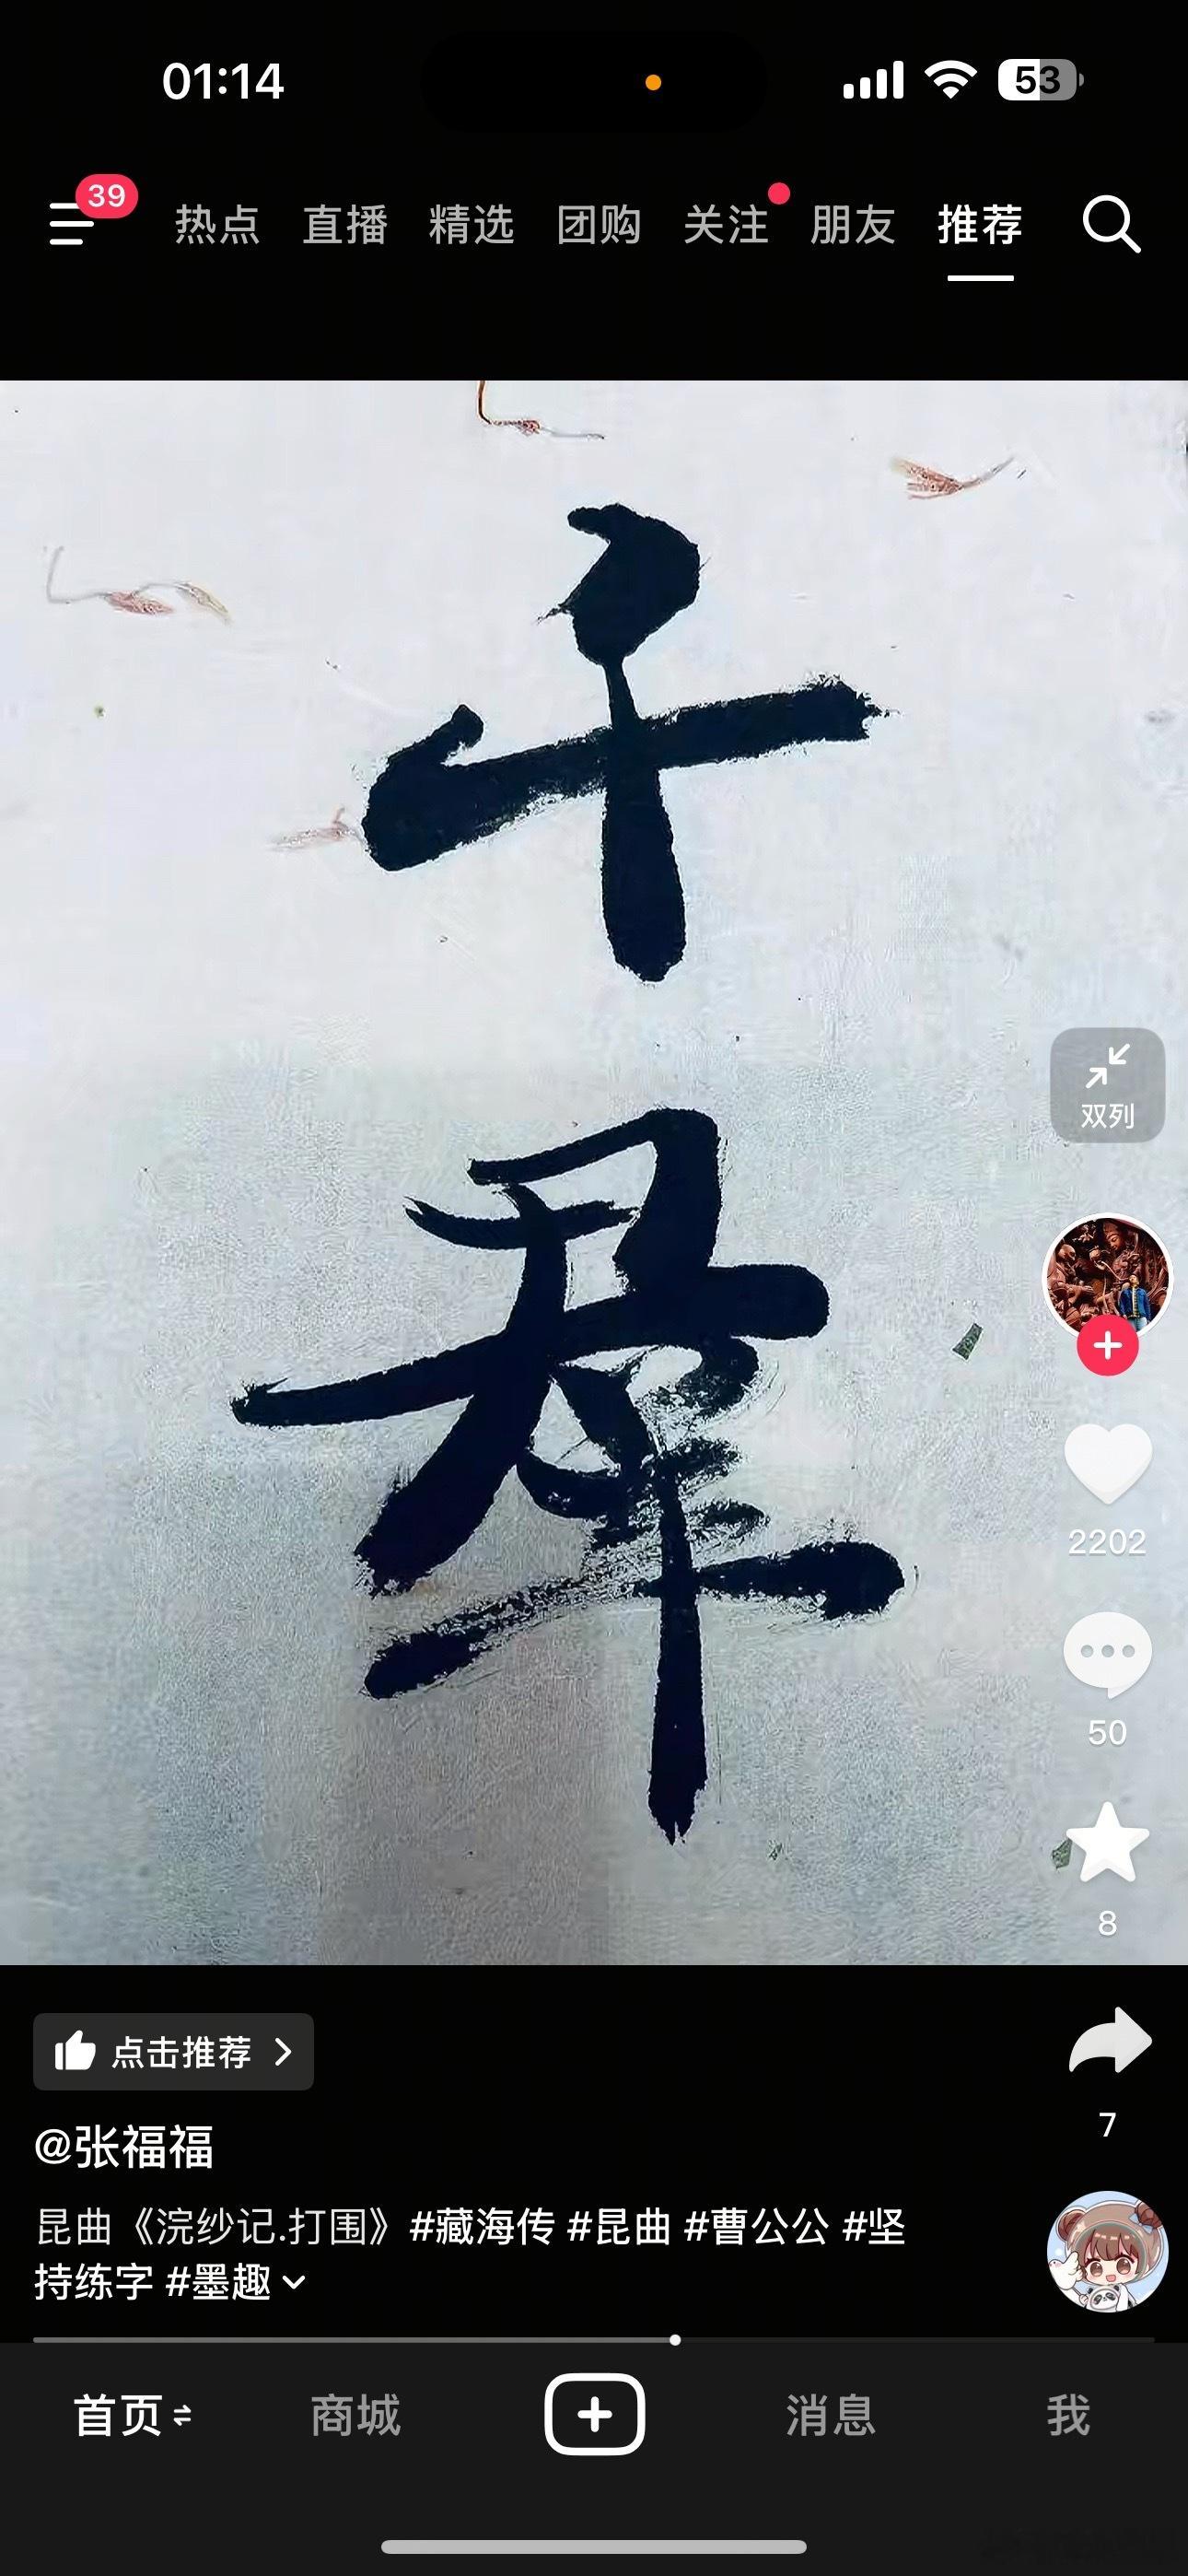 01:14
53
39
热点 直播 精选 团购 关注 朋友 推荐
千
羣
双列
2202
50
8
点击推荐
7
@张福福
昆曲《浣纱记.打围》#藏海传 #昆曲 #曹公公 #坚
持练字 #墨趣
首页 商城 消息 我